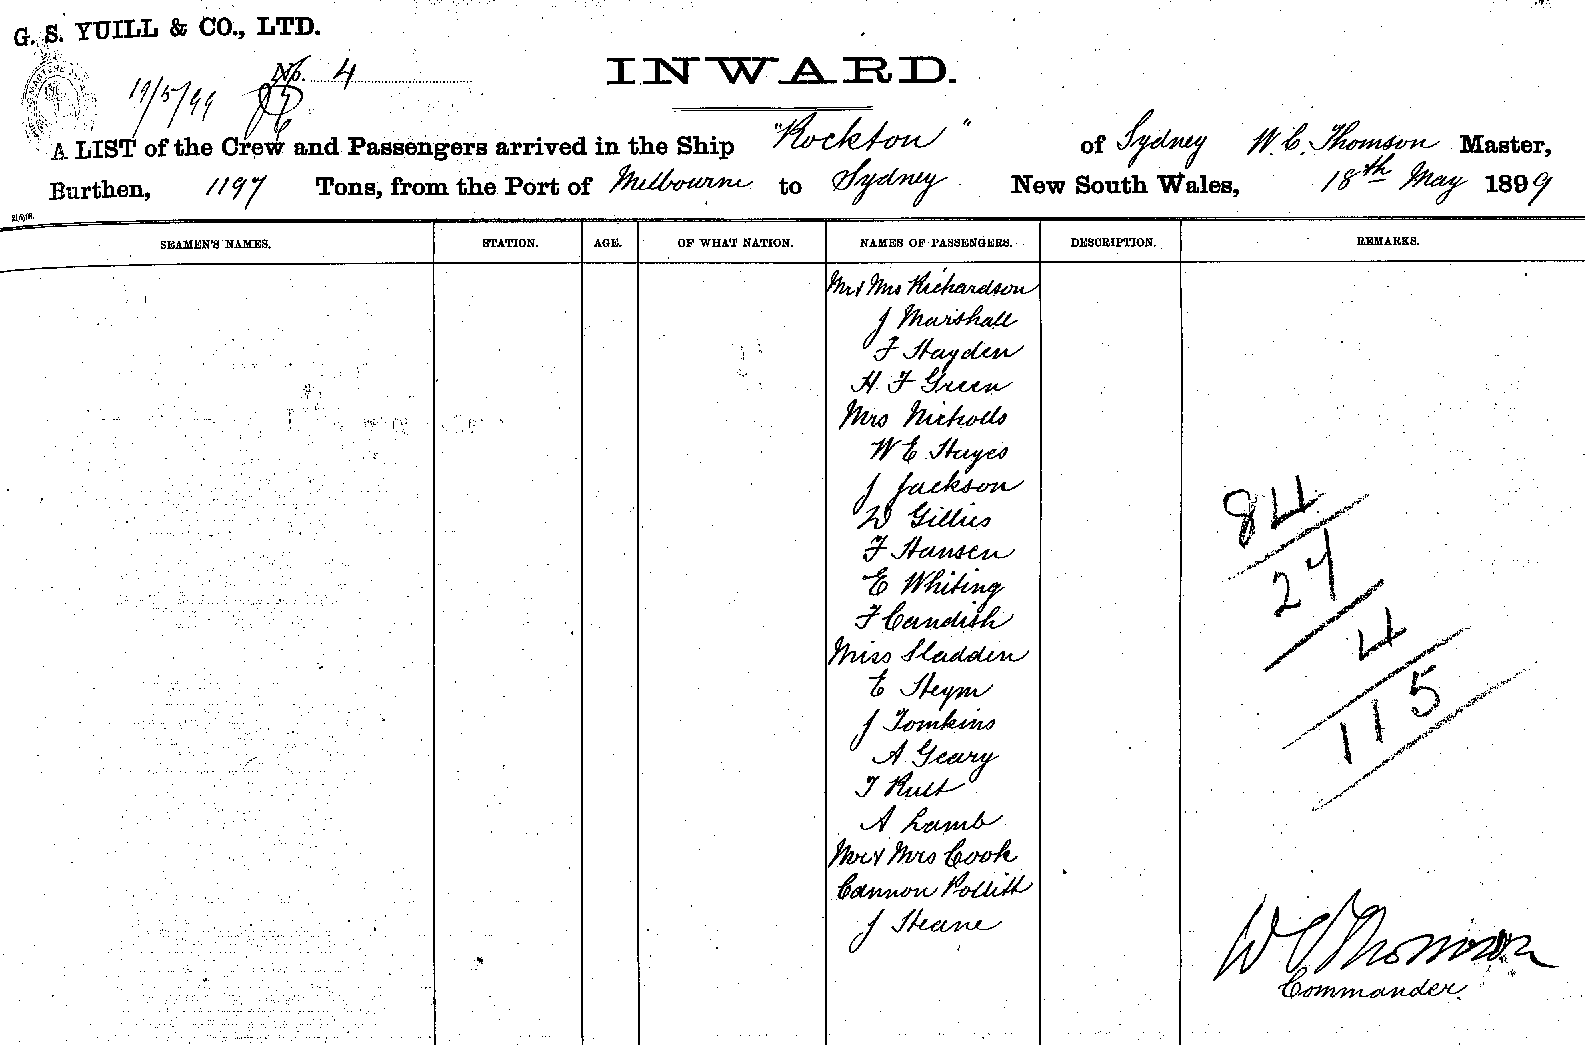 G. S. YUILL & CO., LTD.
No. 4
INWARD.
19/5/99
A LIST of the Crew and Passengers arrived in the Ship "Rockton" of Sydney W. C. Thomson Master,
Burthen, 1197 Tons, from the Port of Melbourne to Sydney New South Wales, 18th May 1899
SEAMEN'S NAMES. STATION. AGE. OF WHAT NATION. NAMES OF PASSENGERS. DESCRIPTION. REMARKS.
Mr & Mrs Richardson
J Marshall
F Hayden
H F Green
Mrs Nicholls
W E Hayes
J Jackson
D Gillies
F Hansen
E Whiting
F Candish
Miss Sladden
E Heym
J Tomkins
A Geary
T Rutt
A Lamb
Mr & Mrs Cook
Cannon Pollitt
J Heane
84
27
4
115
W C Thomson
Commander.